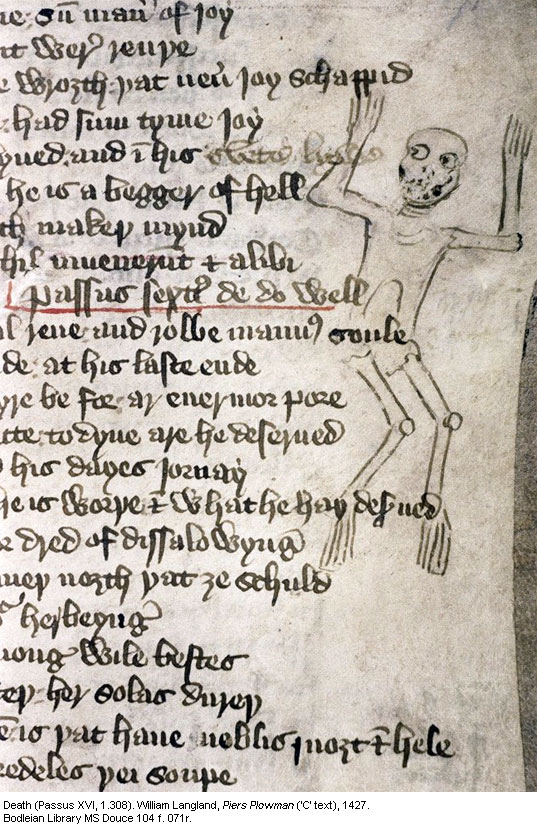 ne sū maner of joy
nt wer renþe
e wrozth þat neū joy schappid
had sum tyme joy
yned and ī his
he is a begger of hell
th makeþ mynd
nihil invenerūt & alibi
Passus sext de do well
l reue and robbe mannus soule
de at his laste ende
yre be for ar enermor pore
tte to dyne are he deserued
his dayes jornay
he is worþe & what he haþ deserued
e dred of dissalowyng
neþ north þat ze schuld
herbeyng
mong wile bestes
teþ her solas dureþ
is þat haue neblis mozt & hele
redeles þei souþe
Death (Passus XVI, 1.308). William Langland, Piers Plowman ('C' text), 1427.
Bodleian Library MS Douce 104 f. 071r.